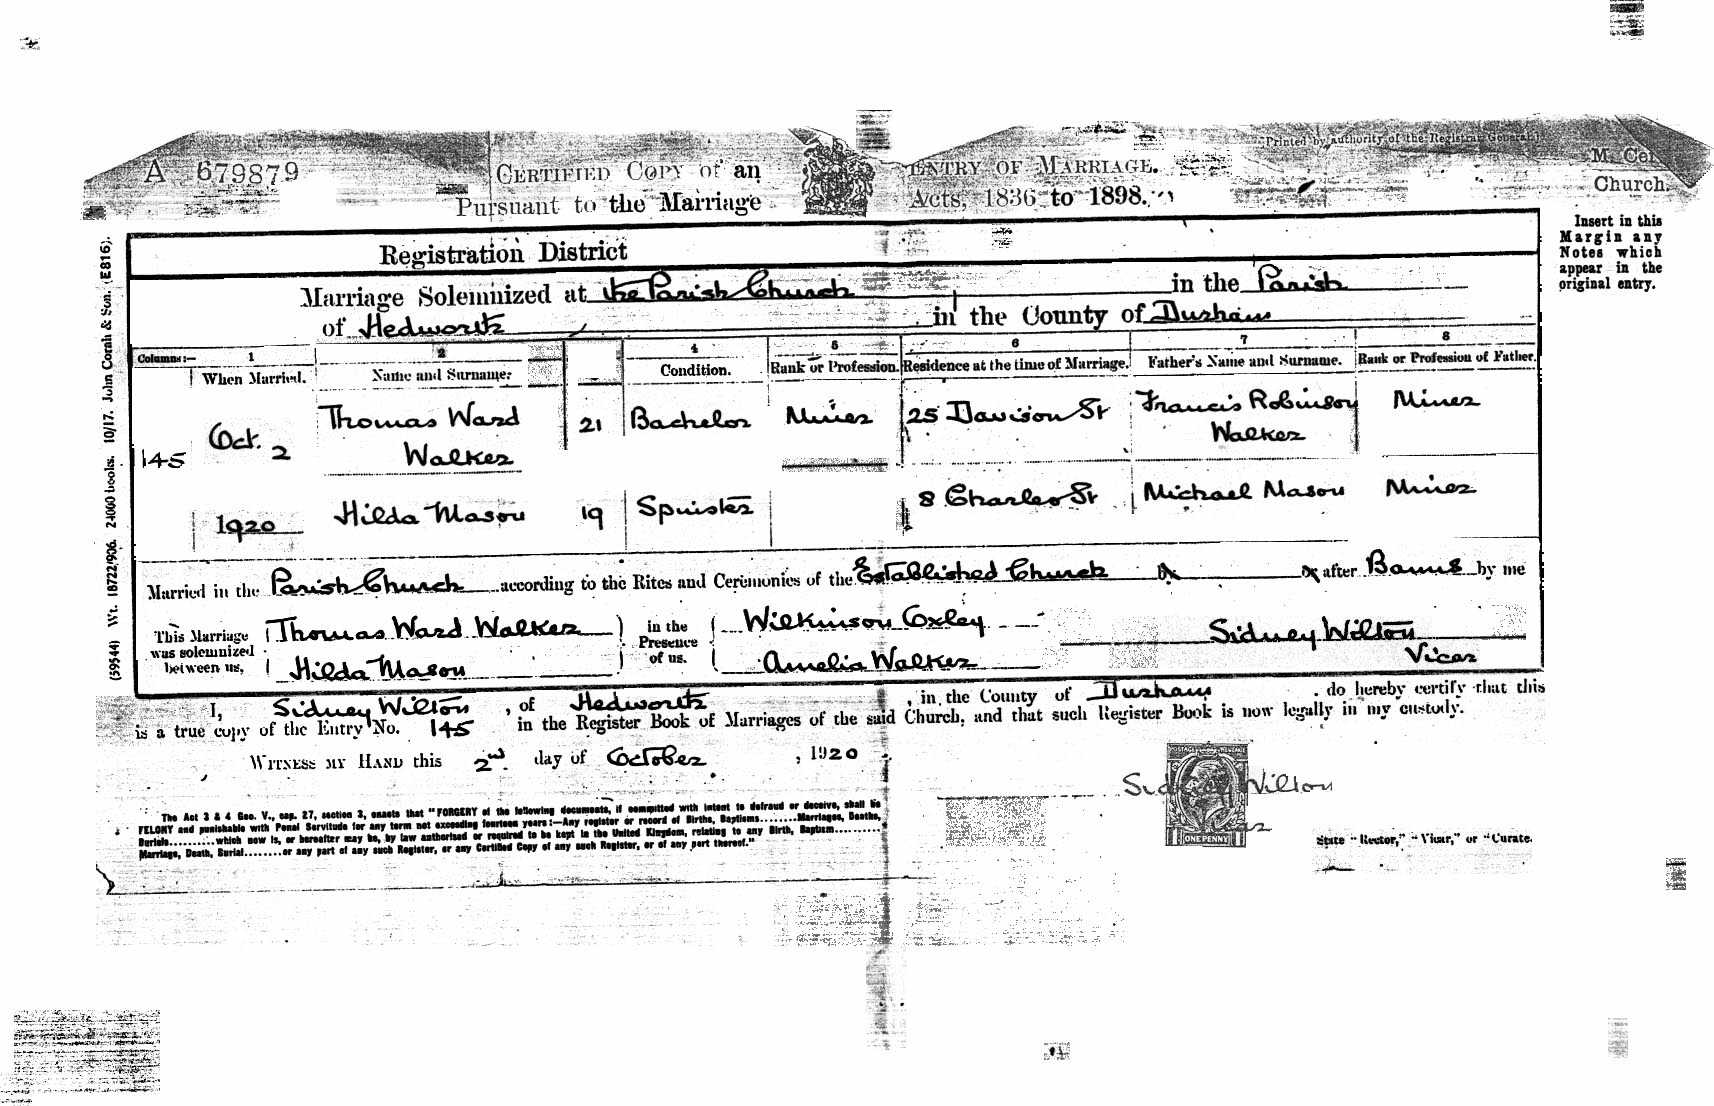 A 679879 CERTIFIED COPY of an ENTRY OF MARRIAGE. Printed by authority of the Registrar General.
M. Cer.
Pursuant to the Marriage Acts, 1836 to 1898. Church.
Insert in this
Margin any
Notes which
appear in the
original entry.
(59544) Wt. 18722/906. 24060 books. 10/17. John Corah & Son. (E816).
Registration District
Marriage Solemnized at the Parish Church in the Parish
of Hedworth in the County of Durham
Columns:— 1 2 4 5 6 7 8
When Married. Name and Surname. Condition. Rank or Profession. Residence at the time of Marriage. Father's Name and Surname. Rank or Profession of Father.
145 Oct. 2 Thomas Ward Walker 21 Bachelor Miner 25 Davison St Francis Robinson Walker Miner
1920 Hilda Mason 19 Spinster 8 Charles St Michael Mason Miner
Married in the Parish Church according to the Rites and Ceremonies of the Established Church or after Banns by me
This Marriage was solemnized between us, Thomas Ward Walker
Hilda Mason
in the Presence of us. Wilkinson Oxley
Amelia Walker
Sidney Wilton
Vicar
I, Sidney Wilton, of Hedworth, in the County of Durham, do hereby certify that this
is a true copy of the Entry No. 145 in the Register Book of Marriages of the said Church, and that such Register Book is now legally in my custody.
WITNESS MY HAND this 2nd. day of October, 1920
Sidney Wilton
POSTAGE REVENUE
ONE PENNY
The Act 3 & 4 Geo. V., cap. 27, section 3, enacts that "FORGERY of the following documents, if committed with intent to defraud or deceive, shall be
FELONY and punishable with Penal Servitude for any term not exceeding fourteen years:—Any register or record of Births, Baptisms........Marriages, Deaths,
Burials..........which now is, or hereafter may be, by law authorised or required to be kept in the United Kingdom, relating to any Birth, Baptism..........
Marriage, Death, Burial........or any part of any such Register, or any Certified Copy of any such Register, or of any part thereof."
State "Rector," "Vicar," or "Curate.